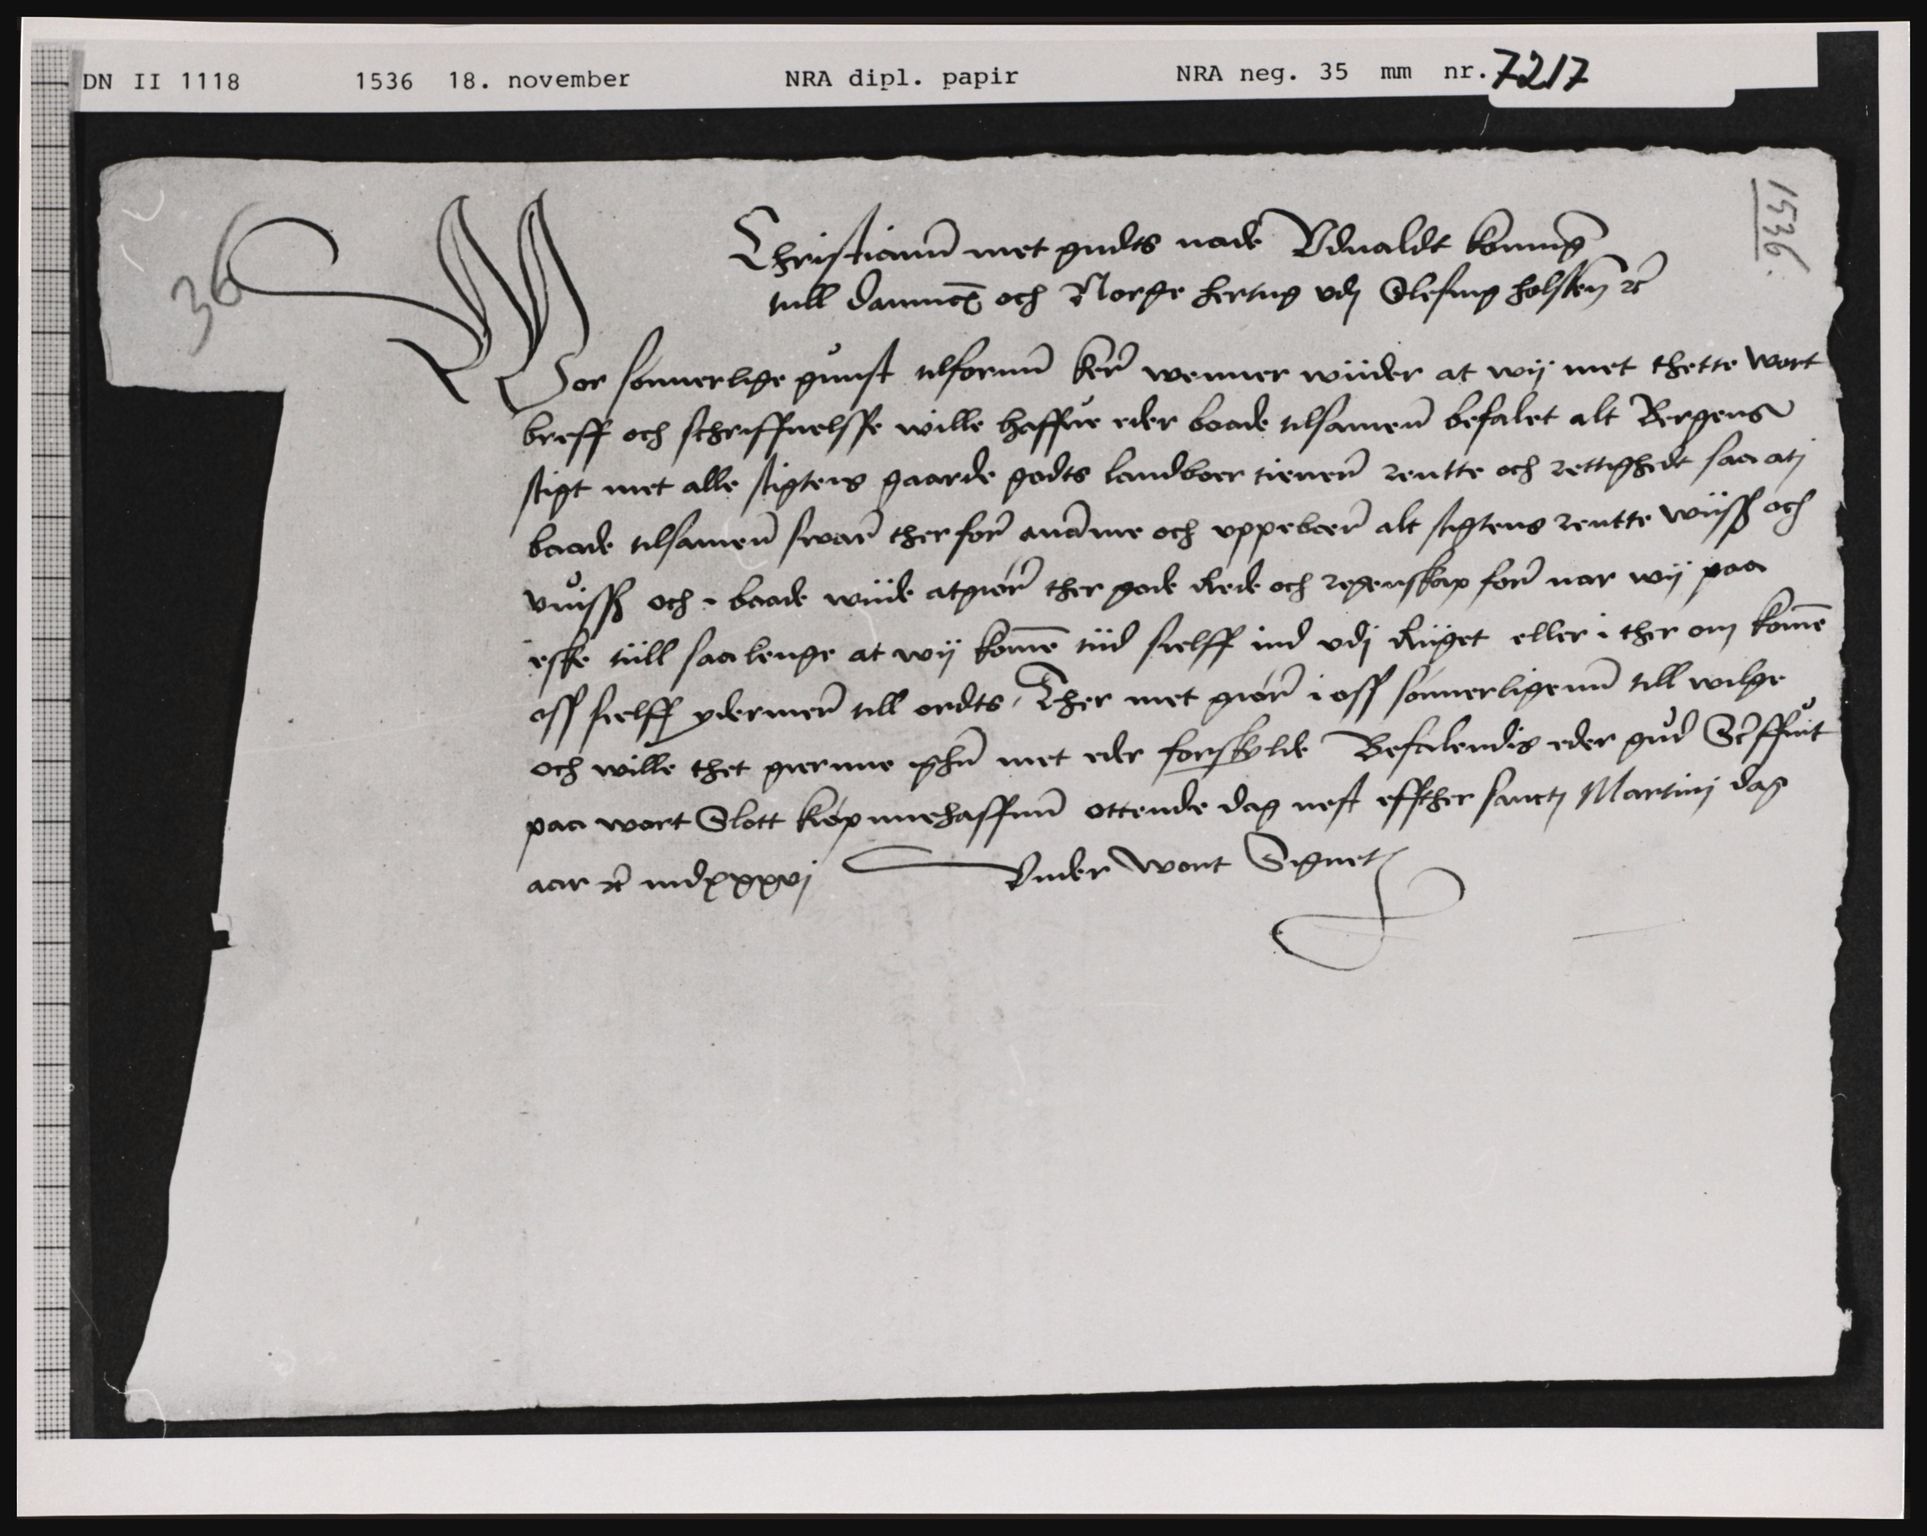 DN II 1118 1536 18. november NRA dipl. papir NRA neg. 35 mm nr. 7217
36
1536.
Christiann met gudts nade Vdualdt konning
till danmarck och Norge hertug vdj Slesuig holsten rc
Vor sonnerlige gunst tilfornn kere wenner wiider at wij met thette wort
breff och schriffuelsse wille haffue eder baade tilsamenn befalet alt Bergens
stigt met alle stigtens gaarde godts landboer tienere rentte och rettighedt saa ati
baade tilsamenn suare ther fore aname och vppebære alt stigtens rentte wiissz och
vuissz och i baade wiide at giøre ther gode Rede och regenskap fore nar wij paa
eske till saa lenge at wij kome tiid sielff ind vdj Riiget eller i ther om kome
oss sielff ydermere till ordts, Ther met giøre i oss sønnerligenn till wilge
och wille thet giernne ighn met eder forskylde Befalendis eder gud Screffuit
paa wort Slott køpnnehaffnn ottende dag nest effther sancti Martinj dag
aar rc mdxxxvj Vnder wort Signet